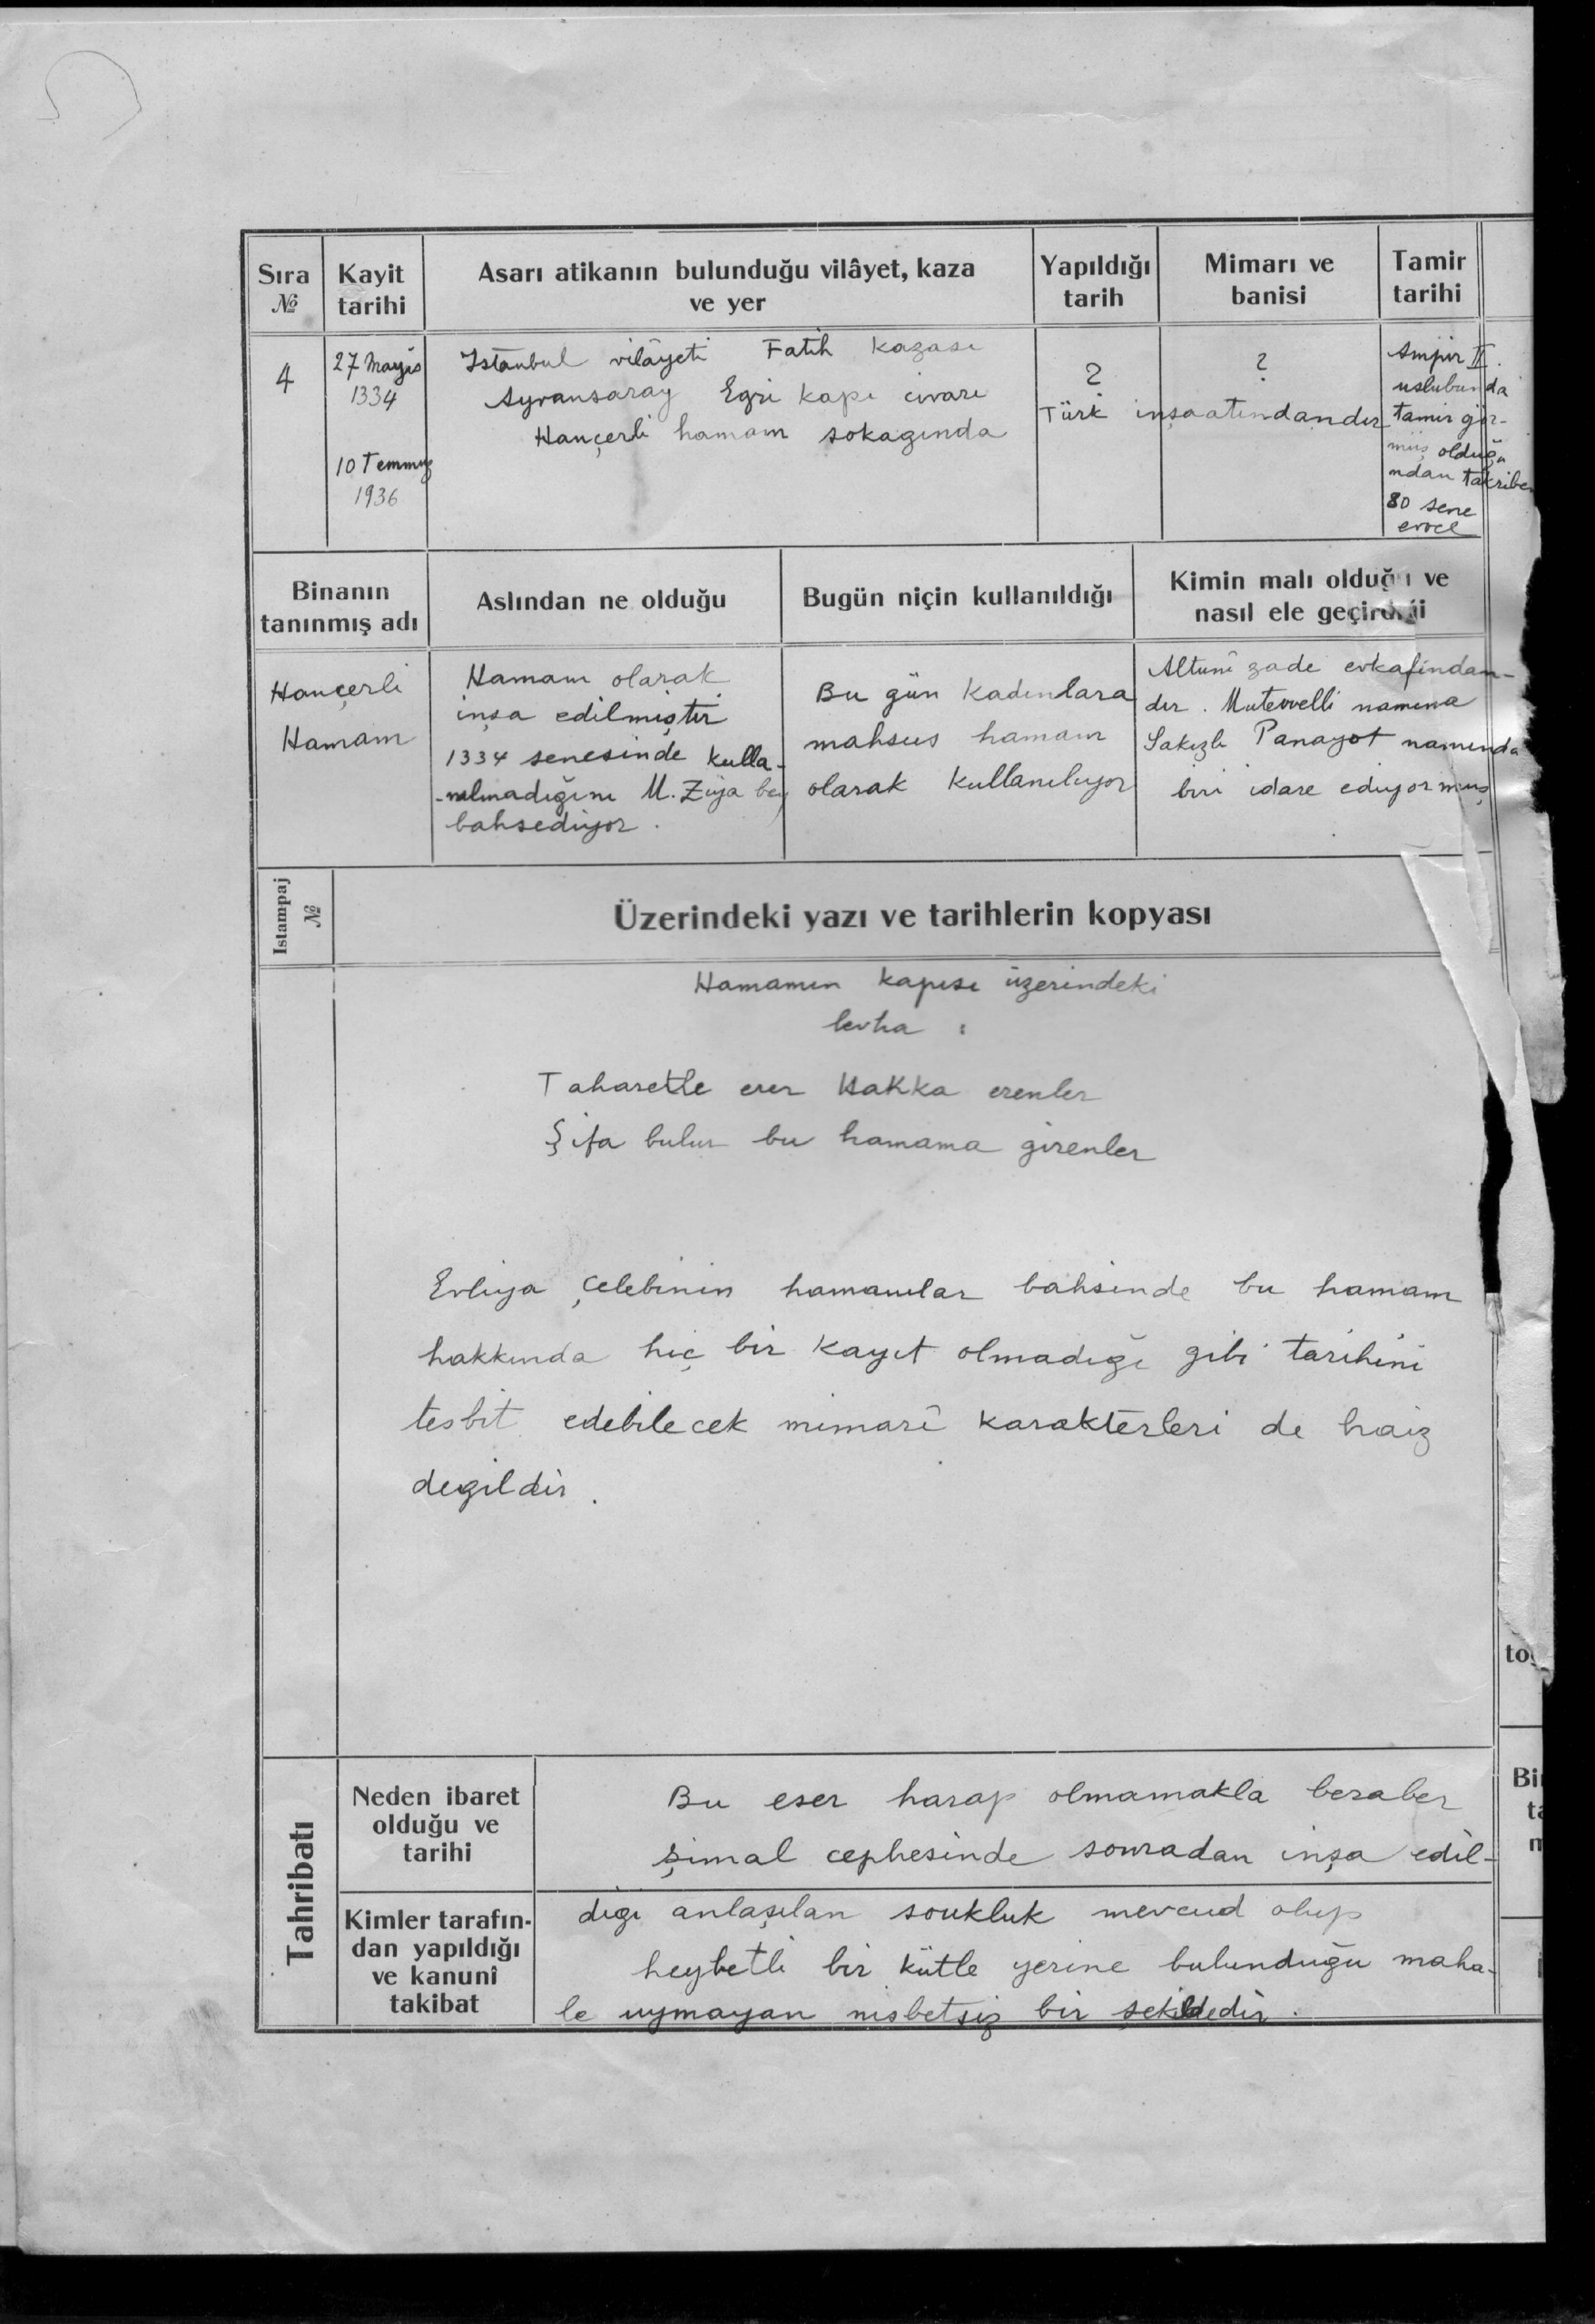 Sıra № Kayit tarihi Asarı atikanın bulunduğu vilâyet, kaza ve yer Yapıldığı tarih Mimarı ve banisi Tamir tarihi
4
27 Mayıs
1334
10 Temmuz
1936
Istanbul vilâyeti Fatih kazası
Ayvansaray Egri kapı civarı
Hançerli hamam sokagında
?
?
Türk inşaatındandır
Ampir II.
uslubunda
tamir gör-
müş olduğu
ndan takriben
80 sene
evvel
Binanın tanınmış adı
Aslından ne olduğu
Bugün niçin kullanıldığı
Kimin malı olduğu ve
nasıl ele geçirdiği
Hançerli
Hamam
Hamam olarak
inşa edilmiştir
1334 senesinde kulla-
-nılmadığını M. Ziya bey
bahsediyor.
Bu gün kadınlara
mahsus hamam
olarak kullanılıyor
Altuni zade evkafından-
dır. Mutevvelli namına
Sakızlı Panayot namında
biri idare ediyormuş
Istampaj №
Üzerindeki yazı ve tarihlerin kopyası
Hamamın kapısı üzerindeki
levha :
Taharetle erer Hakka erenler
Şifa bulur bu hamama girenler
Evliya Çelebinin hamamlar bahsinde bu hamam
hakkında hiç bir kayıt olmadığı gibi tarihini
tesbit edebilecek mimarî karakterleri de haiz
degildir.
Tahribatı
Neden ibaret
olduğu ve
tarihi
Kimler tarafın-
dan yapıldığı
ve kanunî
takibat
Bu eser harap olmamakla beraber
şimal cephesinde sonradan inşa edil-
digi anlaşılan soukluk mevcud olup
heybetli bir kütle yerine bulunduğu maha-
le uymayan nisbetsiz bir şekildedir.